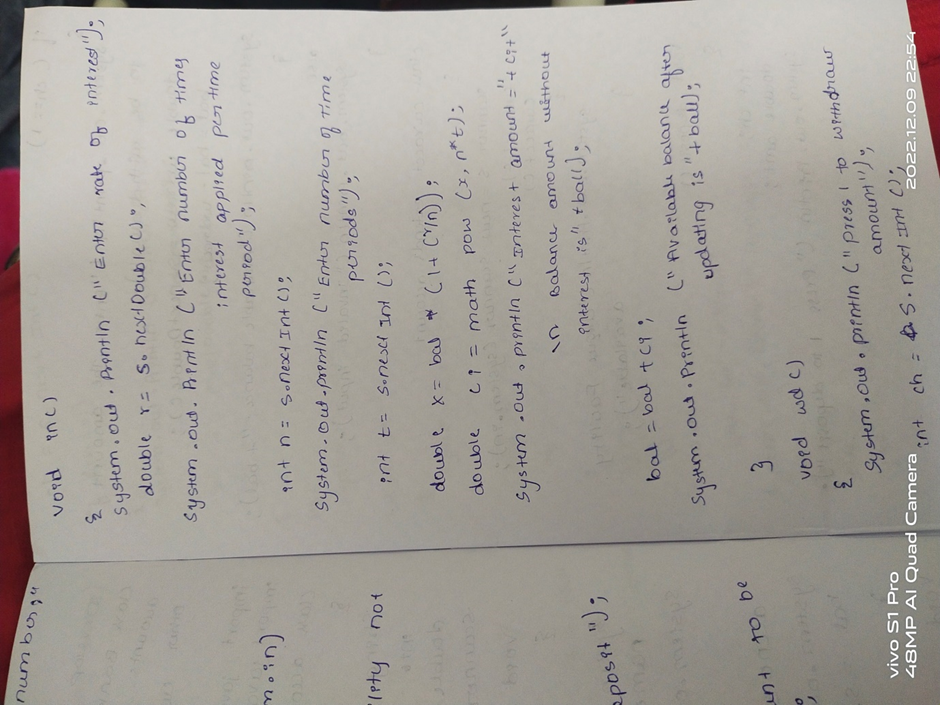 number;"
m.in)
lity not
eposit");
unt to be
void in()
{
System.out.println ("Enter rate of interest");
double r = s.nextDouble();
System.out.println ("Enter number of times
interest applied per time
period");
int n = s.nextInt();
System.out.println ("Enter number of time
periods");
int t = s.nextInt();
double x = bal * (1+(r/n));
double ci = math pow (x, n*t);
System.out.println ("Interest amount="+ci+"
\n balance amount without
interest is"+ball);
bal = bal + ci;
System.out.println ("Available balance after
updating is"+ball);
}
void wd()
{
System.out.println ("press 1 to withdraw
amount");
int ch = s.nextInt();
vivo S1 Pro
48MP AI Quad Camera
2022.12.09 22:54